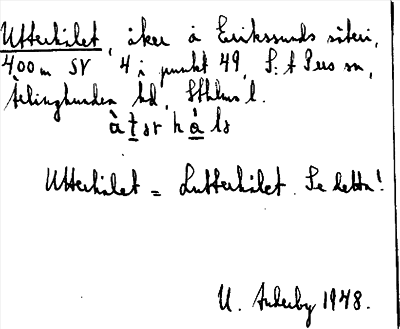 Utterhålet, åker å Erikssunds säteri,
400 m SV 4 i punkt 49, S:t Pers sn,
Ärlinghundra hd, Sthlms l.
Utterhålet = Lutterhålet. Se detta!
U. Anderby 1948.